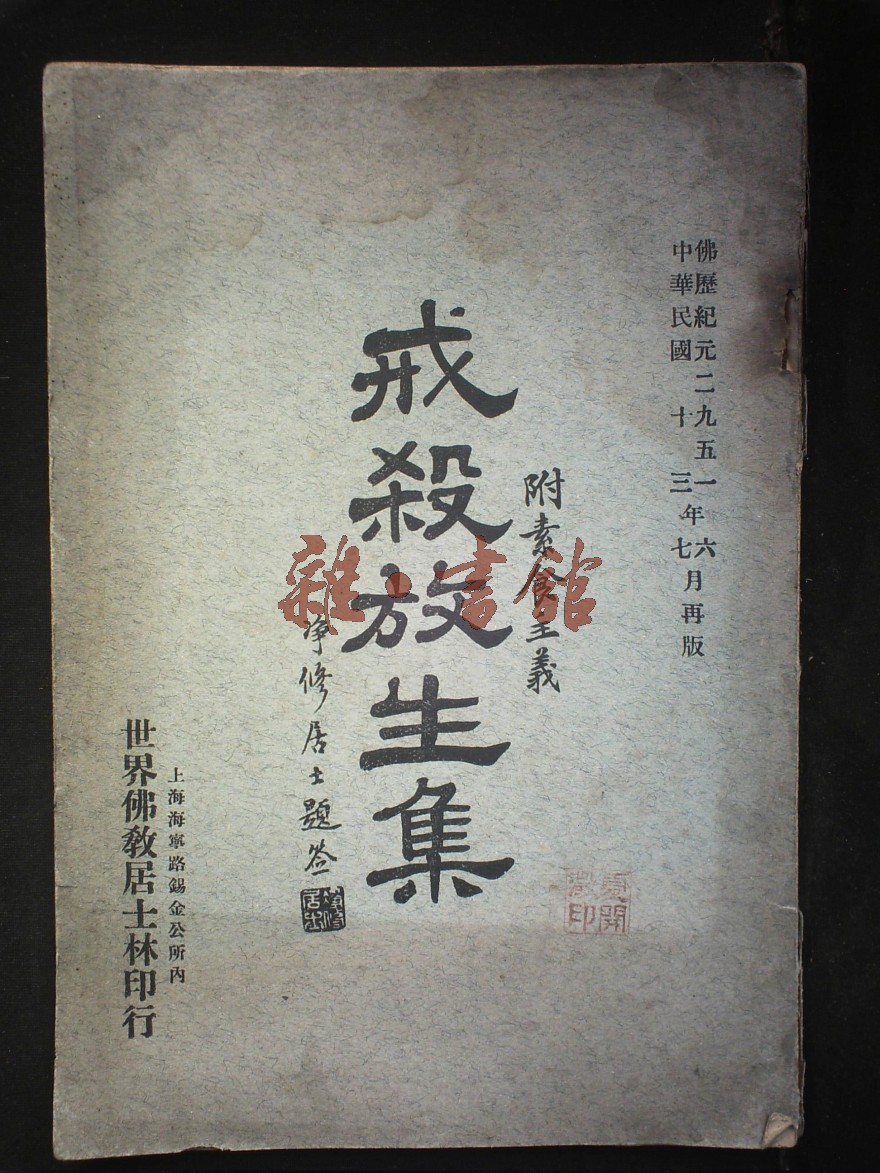 佛歷紀元二九五一年六月再版
中華民國十三年七月再版
附素食主義
戒殺放生集
淨修居士題签
淨修居士
上海海寧路錫金公所內
世界佛教居士林印行
雜書館